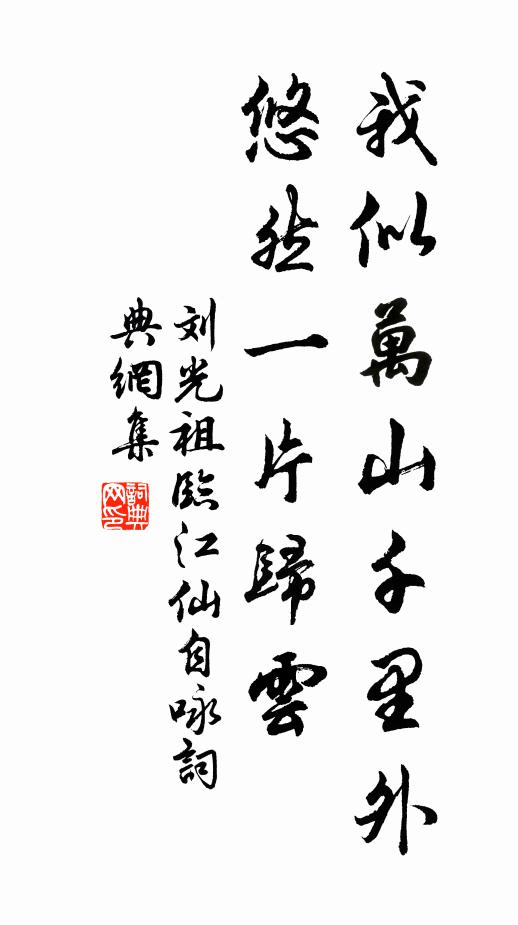 我似萬山千里外
悠然一片歸雲
刘光祖臨江仙自咏詞
典網集
詞典
网印